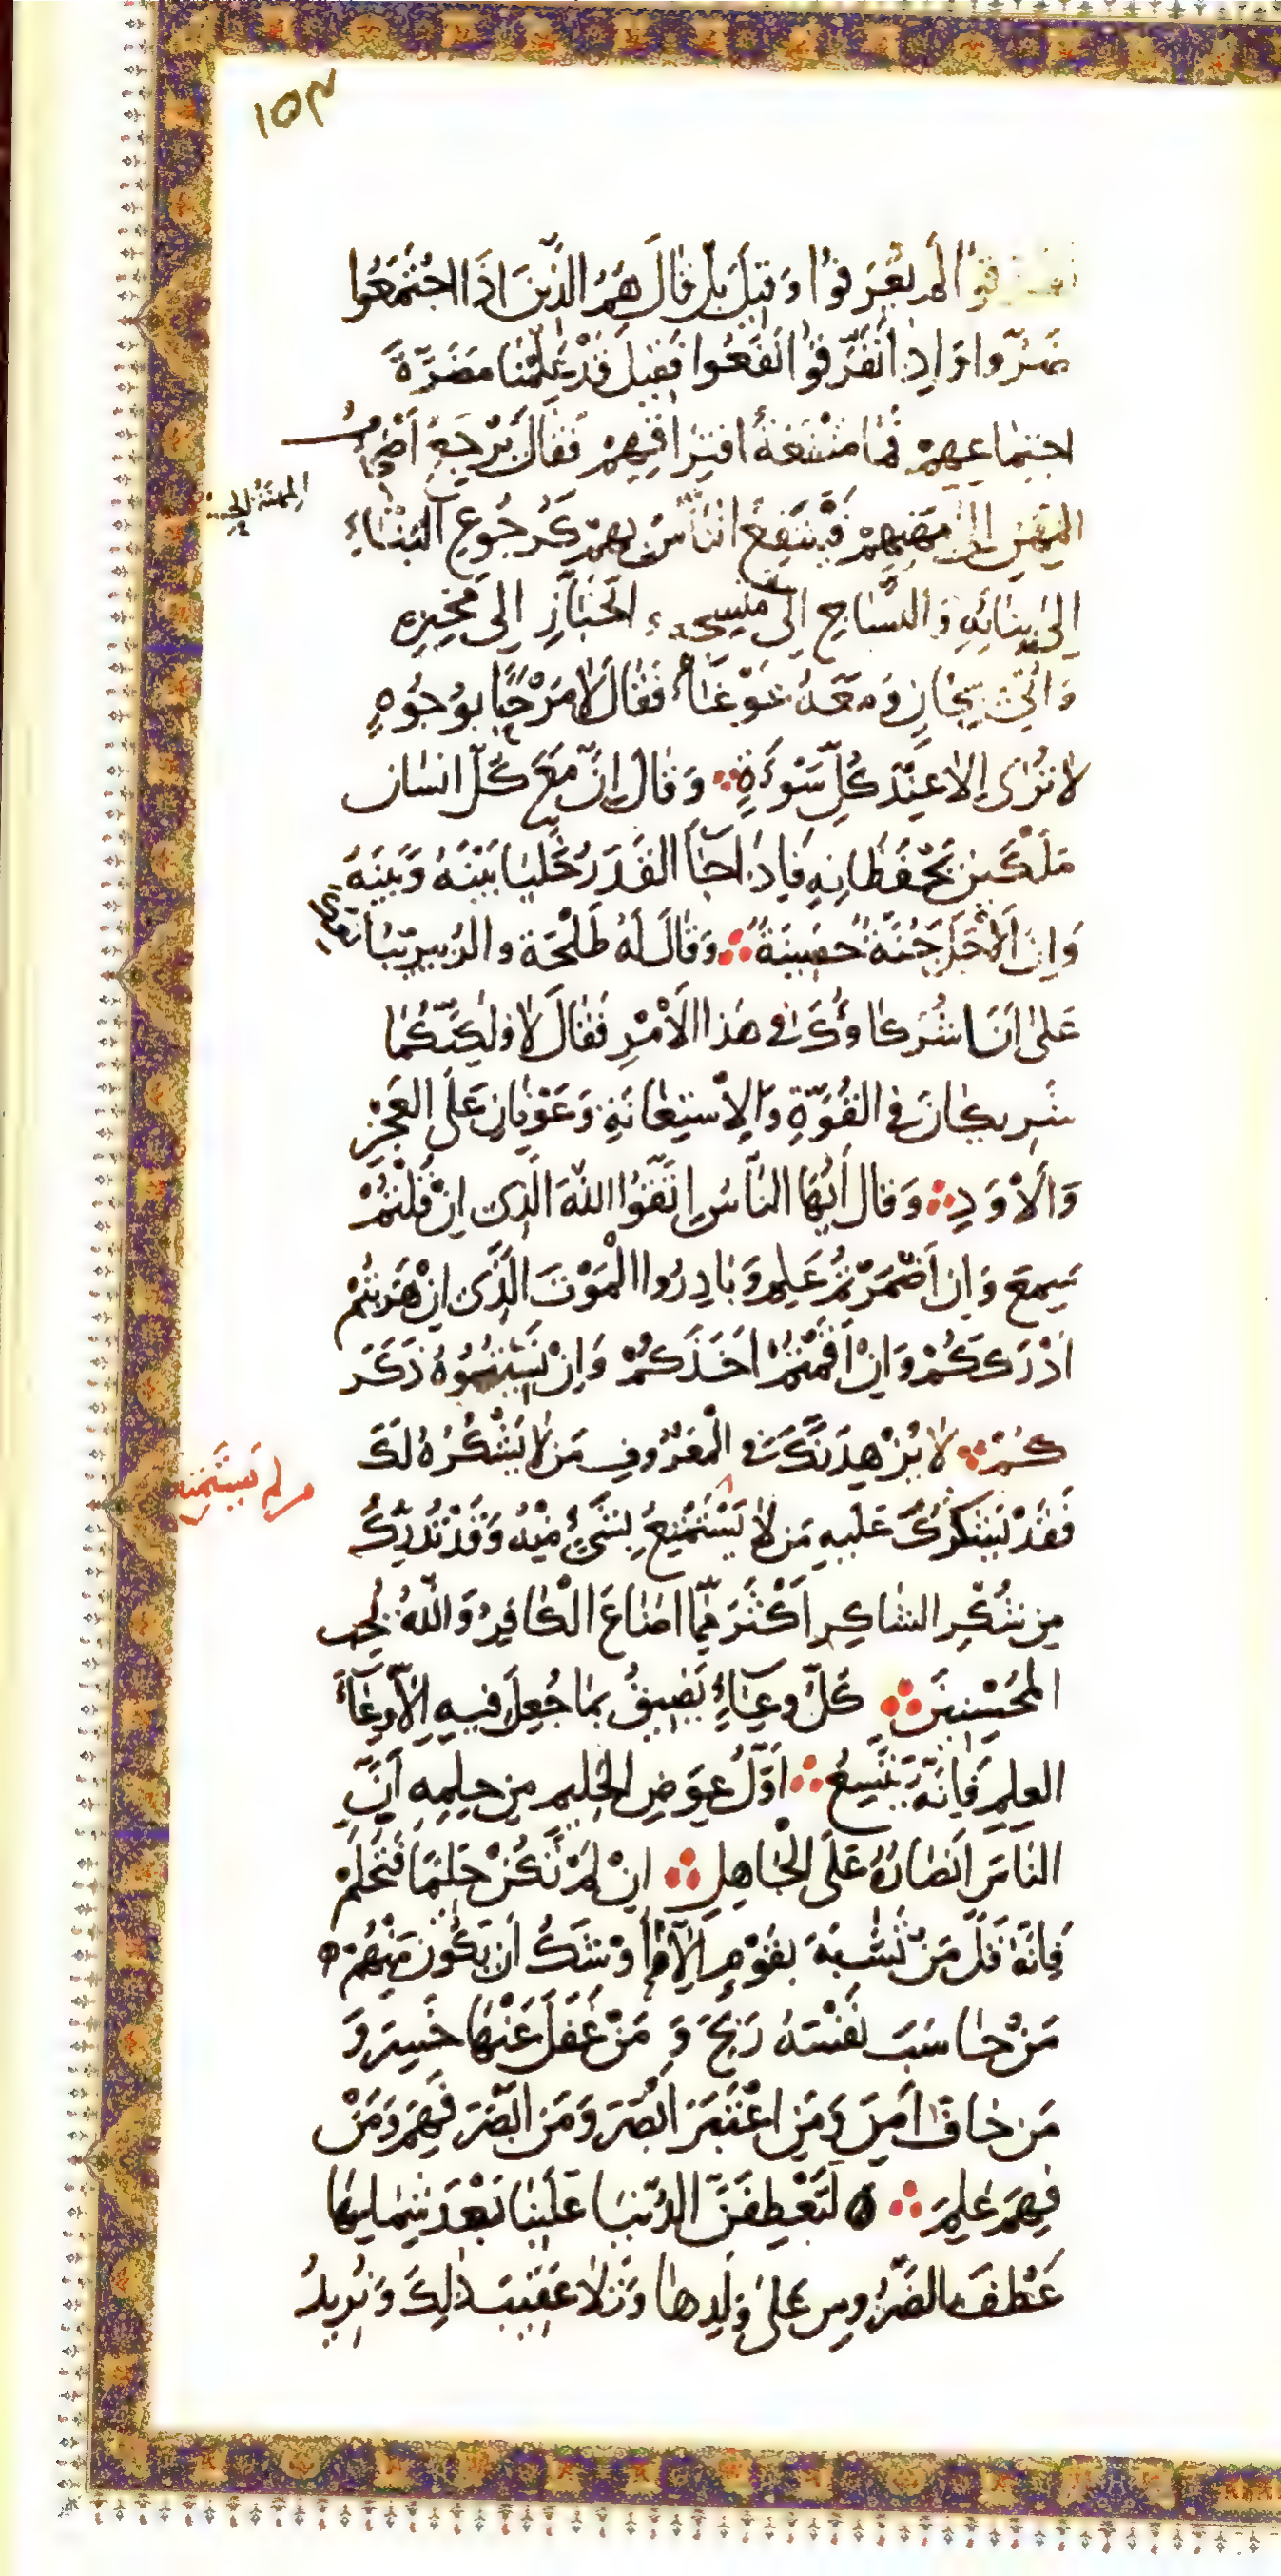 ١٥٣
تفرقوا لم يعرفوا وَقِيلَ بَلْ قَالَ هُمُ الَّذِينَ اذَا اجْتَمَعُوا
ضَرّوا وَاِذا تَفَرَّقُوا نَفَعُوا فَقِيلَ قَدْ عَلِمْنَا مَضَرَّةَ
اجتِماعِهِمْ فَمَا مَنْفَعَةُ افتِرَاقِهِمْ فَقَالَ يَرْجِعُ اَصْحَابُ
المِهَنِ اِلى مِهَنِهِمْ فَيَنْتَفِعُ النّاسُ بِهِمْ كَرُجُوعِ البَنَّاءِ
المهنة
اِلى بِنَائِهِ وَالنَّسَّاجِ اِلَى مَنْسِجِهِ الخَبَّازِ اِلَى مَخْبِزِهِ
وَاُتِيَ بِجَانٍ وَمَعَهُ غَوْغَاءُ فَقَالَ لَا مَرْحَبًا بِوُجُوهٍ
لَا تُرَى اِلا عِنْدَ كُلِّ سَوْءَةٍ وَقَالَ اِنَّ مَعَ كُلِّ انسَان
مَلَكَيْنِ يَحْفَظَانِهِ فَاِذَا جَاءَ القَدَرُ خَلَّيَا بَيْنَهُ وَبَيْنَهُ
وَاِنَّ الأَجَلَ جُنَّةٌ حَصِينَةٌ وَقَالَ لَهُ طَلْحَة والزُبير نُبايعك
عَلى اَنَّا شُرَكاؤُكَ فى هَذا الأَمْرِ فَقَالَ لَا وَلَكِنَّكُمَا
شَرِيكَانِ فِى القُوَّةِ وَالاِسْتِعَانَةِ وَعَوْنَانِ عَلَى العَجْزِ
وَالأَوَدِ وَقَال اَيُّهَا النَّاسُ اِتَّقُوا اللهَ الَّذِى اِنْ قُلْتُمْ
سَمِعَ وَاِن اَضْمَرْتُمْ عَلِمَ وَبَادِرُوا الْمَوْتَ الَّذِى اِنْ هَرَبْتُمْ
اَدْرَكَكُمْ وَاِنْ اَقَمْتُمْ اَخَذَكُمْ وَاِنْ نَسِيتُمُوهُ ذَكَرَ
كُمْ لَا يُزْهِدَنَّكَ فى الْمَعْرُوفِ مَن لَا يَشْكُرُهُ لَكَ
من لم يستمتع
فَقَدْ يَشْكُرُكَ عَلَيهِ مَن لَا يَسْتَمْتِعُ بِشَىْءٍ مِنْهُ وَقَدْ تُدْرِكُ
مِن شُكْرِ الشاكِرِ اَكْثَرَ مِمَّا اضَاعَ الْكَافِرُ وَاللهُ يُحِب
المُحْسِنِينَ كُلُّ وِعَاءٍ يَضِيقُ بِمَا جُعِلَ فِيهِ اِلاّ وِعَاءَ
العِلمِ فَاِنَّهُ يَتَّسِعُ اَوَّلُ عِوَضِ الحَلِيمِ مِن حِلمِهِ اَنَّ
النَاسَ اَنْصَارُهُ عَلَى الْجَاهِلِ اِنْ لَمْ تَكُنْ حَلِيمًا فَتَحَلَّمْ
فَاِنَّهُ قَلَّ مَنْ تَشَبَّهَ بِقَوْمٍ اِلاّ اَوْشَكَ اَن يَكُونَ مِنْهُمْ
مَنْ حَاسَبَ نَفْسَهُ رَبِحَ وَ مَنْ غَفَلَ عَنْهَا خَسِرَ وَ
مَن خَافَ اَمِنَ وَمَنِ اعْتَبَرَ اَبْصَرَ وَمَن اَبْصَرَ فَهِمَ وَمَنْ
فَهِمَ عَلِمَ لَتَعْطِفَنَّ الدُّنْيَا عَلَيْنَا بَعْدَ شِمَاسِهَا
عَطْفَ الضَّرُوسِ عَلى وَلَدِهَا وَتَلَا عَقِيبَ ذَلِكَ وَنُرِيدُ